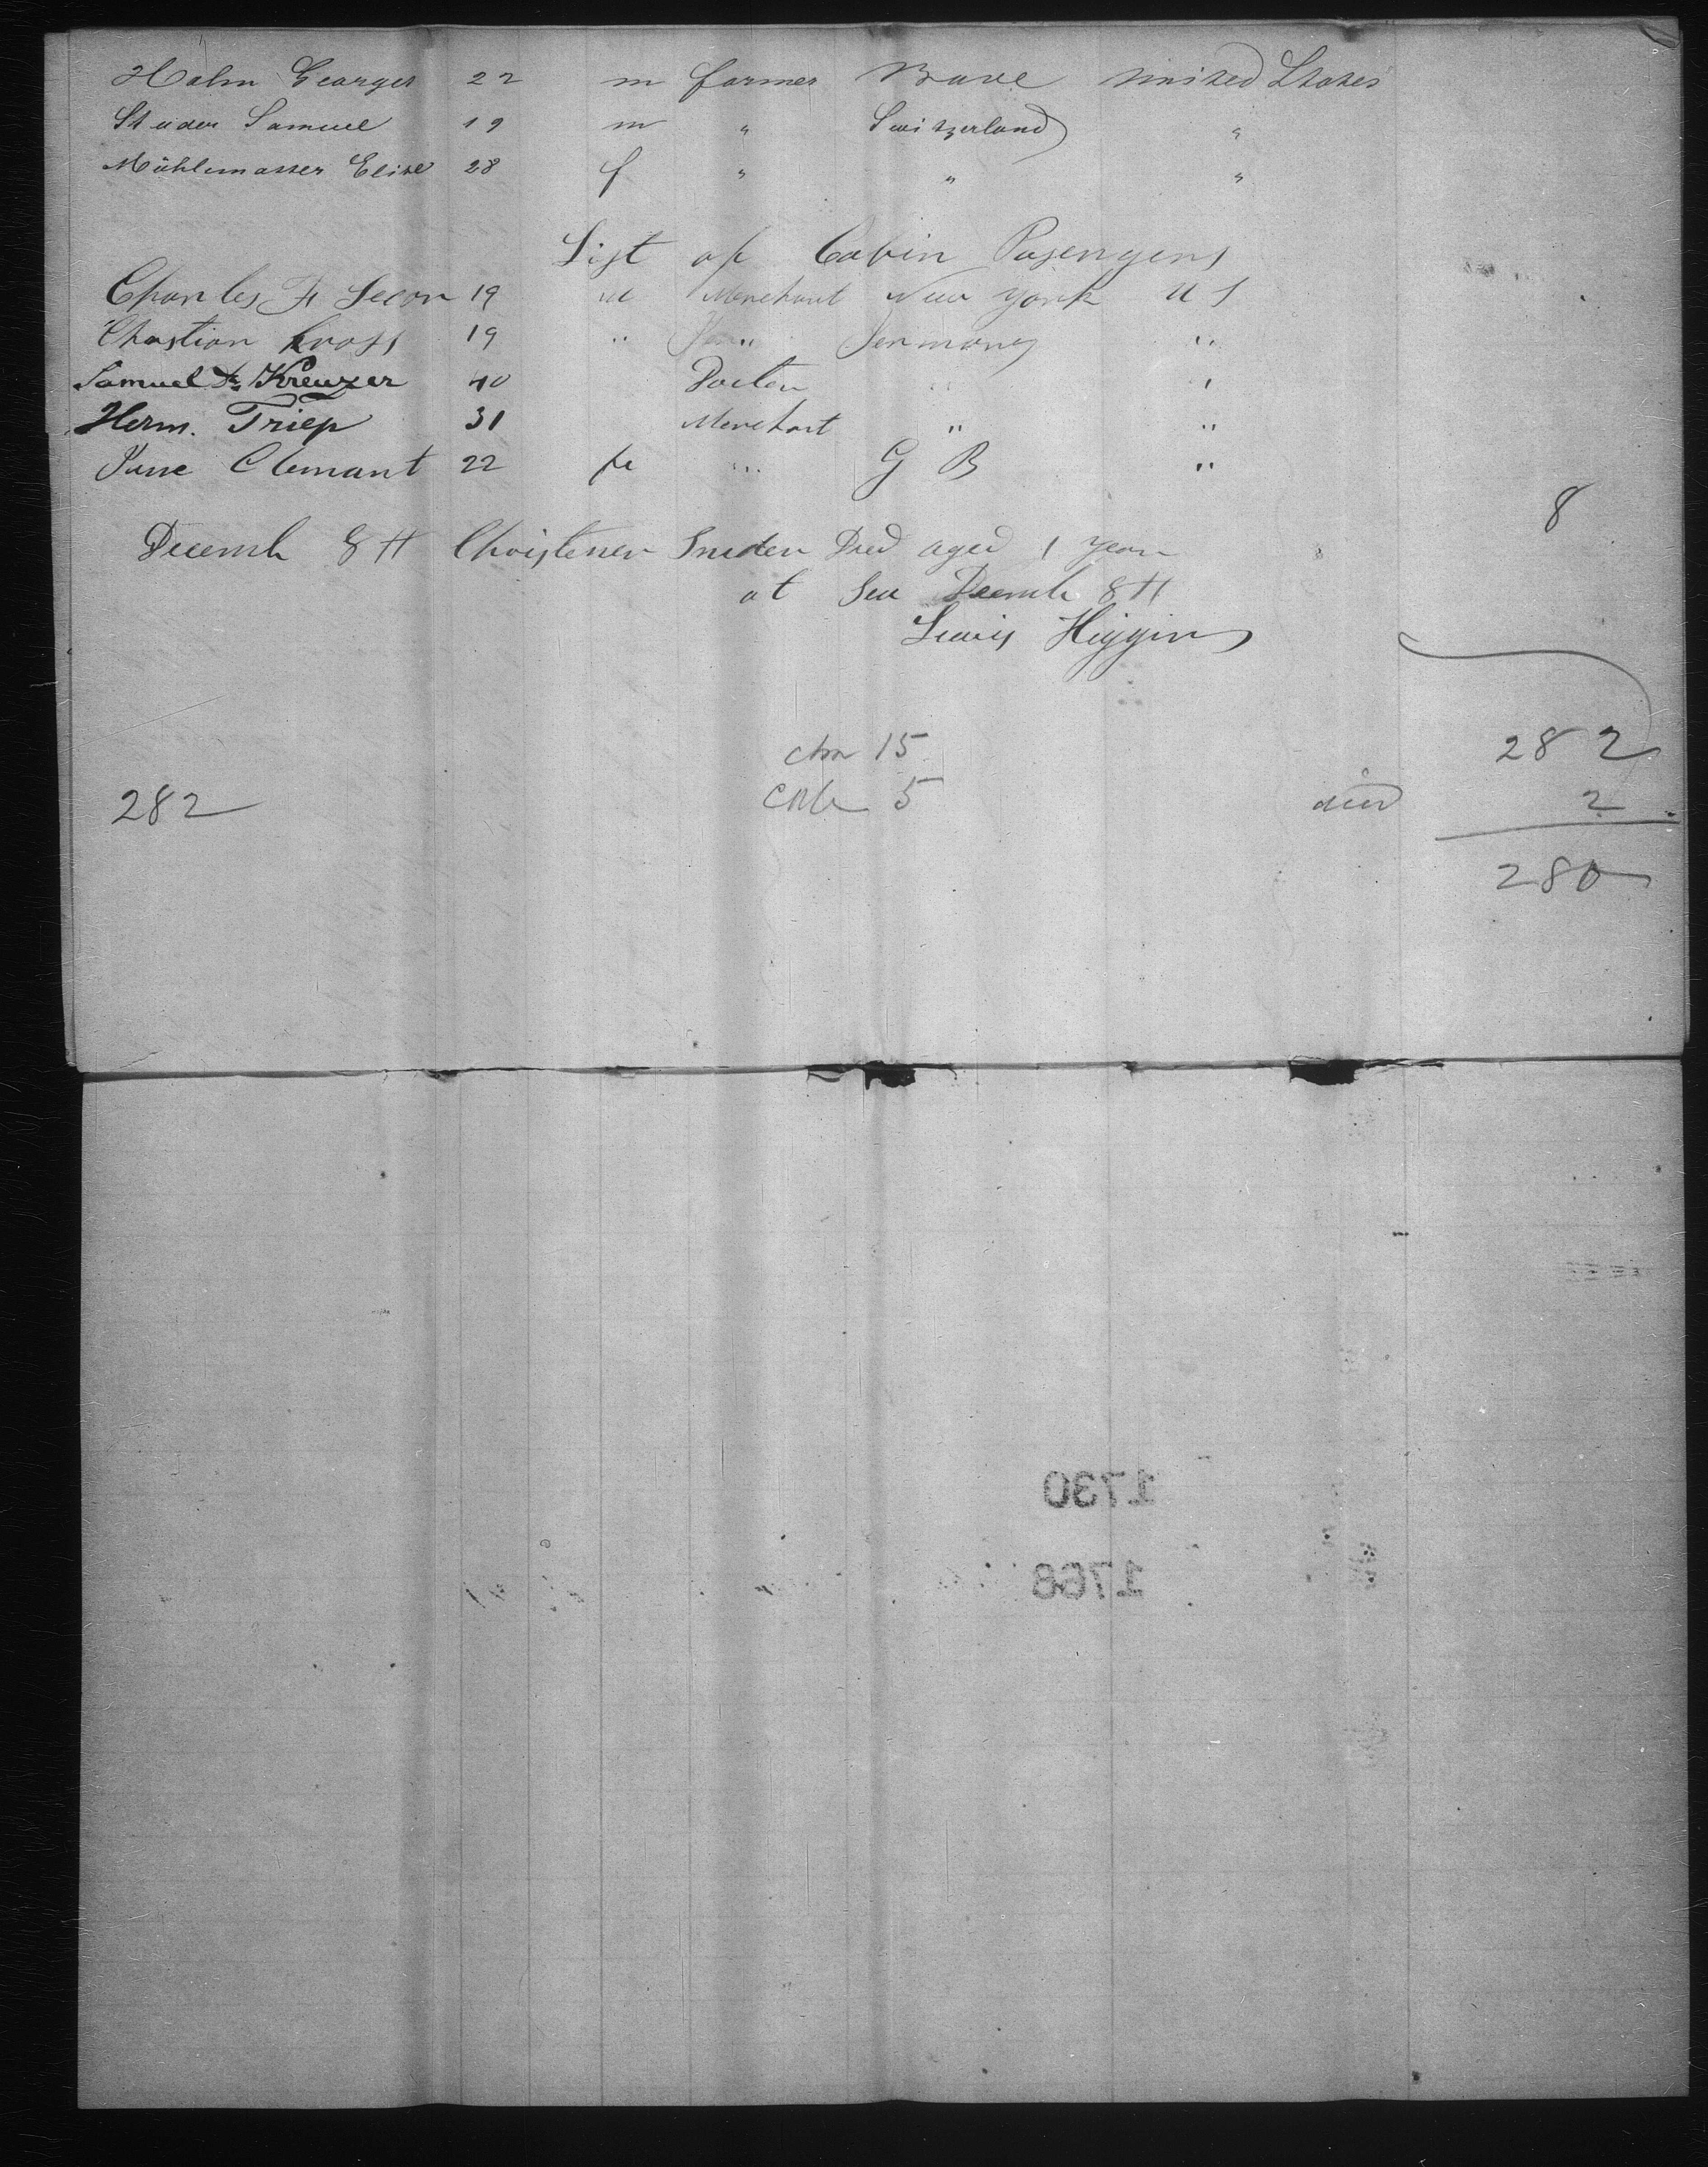 Hahn Georges 22 m farmer United States
Studer Samuel 19 m " Switzerland "
Mühlemasser Elise 28 f " " "
List of Cabin Pasengers
Charles F Secor 19 m Merchant New York U S
Chastion Kross 19 " " Germany "
Samuel Dr Kreuzer 40 Docter " "
Herm. Triep 31 Merchant " "
Clemant 22 fe " G B "
8
Decemb 8th Christener Snider Died aged 1 year
at Sea Decemb 8th
Lewis Higgins
282
chn 15
282 5 died 2
280
1730
1768